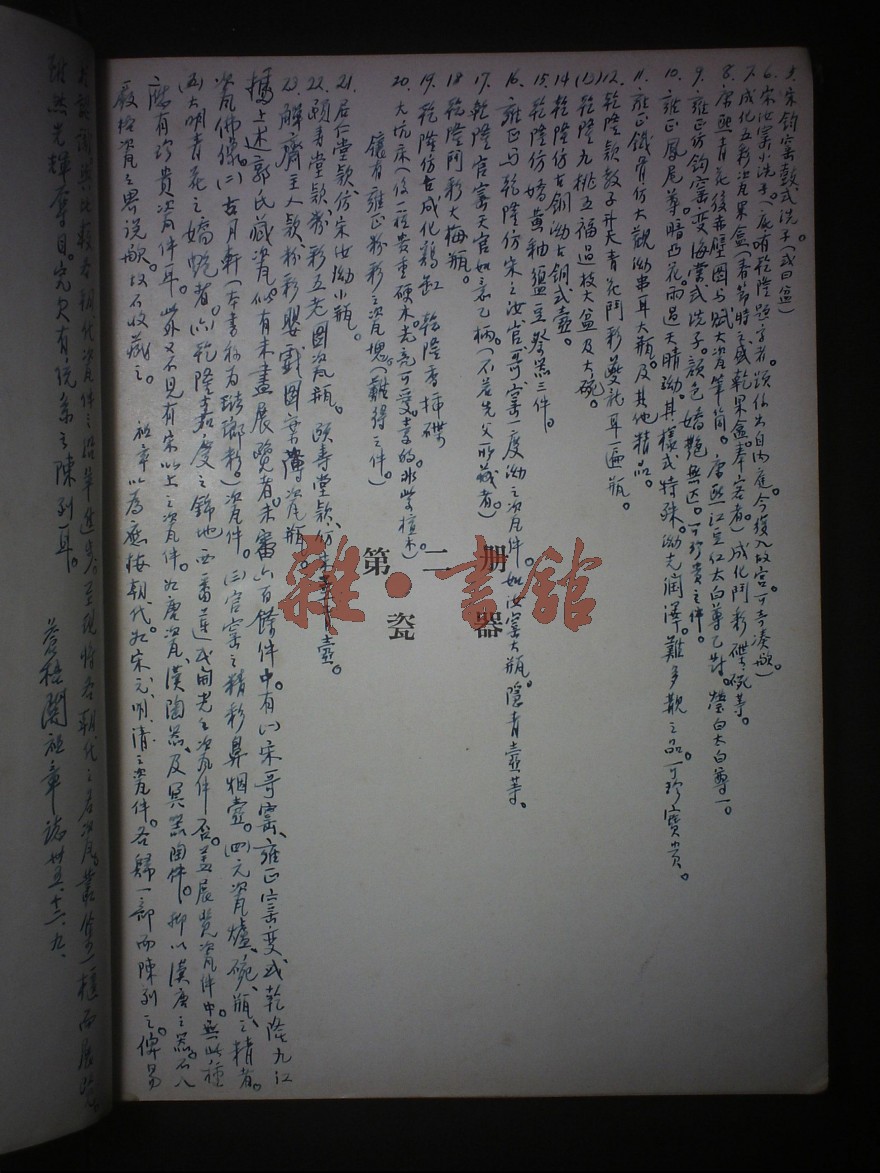 5. 宋鈞窰鼓式洗子(或曰盆)。
6. 宋汝窰小洗子(底有乾隆題字者。蹟係出自內庭。今復入故宮。可喜湊𣤶。)
7. 成化五彩瓷果盒(春節時之盛乾果盒。奉客者)成化鬥彩碟碗等。
8. 康熙青花後赤壁圖与賦大瓷筆筒。康熙江豆紅太白尊乙對。瑩白太白尊一。
9. 雍正仿鈞窰变海棠式洗子。顏色嬌艷無匹。可珍貴之件。
10. 雍正鳳尾尊暗凸花。雨過天晴泑。其樣式特殊。泑光潤澤。難多覯之品。可珍寶貴。
11. 雍正鐵骨仿大觀泑串耳大瓶。及其他精品。
12. 乾隆款教子升天青花鬥彩夔龍耳扁瓶。
(13) 乾隆九桃五福過枝大盆及大碗。
14. 乾隆仿古銅泑古銅式壺。
15. 乾隆仿嬌黃釉簠豆祭器三件。
16. 雍正与乾隆仿宋之汝、官、哥窰一度泑之瓷件。如汝窰大瓶。隱青壺等。
17. 乾隆官窰天官如意乙柄。(不若先父所藏者)
18. 乾隆鬥彩大梅瓶。
19. 乾隆仿古成化鷄缸 乾隆香插碟
20. 大坑床(係一種貴重硬木。光亮可愛喜的。水紫檀木)
鑲有雍正粉彩之瓷塊(難得之件。)
21. 居仁堂款。仿宋汝泑小瓶。
22. 頤壽堂款。粉彩五老圖瓷瓶。頤壽堂款。
23. 解齋主人款。粉彩嬰戲圖蛋薄瓷瓶。
據上述郭氏藏瓷。似有未盡展覽者。未審六百餘件中。有(一)宋哥窰、雍正窰变或乾隆九江
瓷佛像。(二)古月軒(本書称為琺瑯彩)瓷件。(三)官窰之精彩鼻烟壺。(四)元瓷爐、碗、瓶之精者。
(五)大明青花之嬌艷者。(六)乾隆嘉慶之錦地西番蓮式
應有珍貴瓷件耳。此外又不見有宋以上之瓷件。如唐瓷、漢陶器、及冥器陶件。抑以漢唐之器。不入
嚴格瓷之界說歟。故不收藏之。 祖章以為應按朝代。如宋元、明清之瓷件。各歸一部而陳列之。俾易
大認識與比較各朝代瓷件之沿革進步。至現時各朝代之名瓷。叢集一櫃而展覽。
雖然光輝奪目。究欠有統系之陳列耳。
蒼梧關祖章誌 卅五、十二、九、
第二册
瓷器
雜·書館